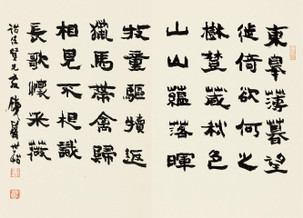 東皋薄暮望
徙倚欲何之
樹秋色
山山蘊落暉
牧童驅犢返
獵馬帶禽歸
相見不相識
長歌懷采薇